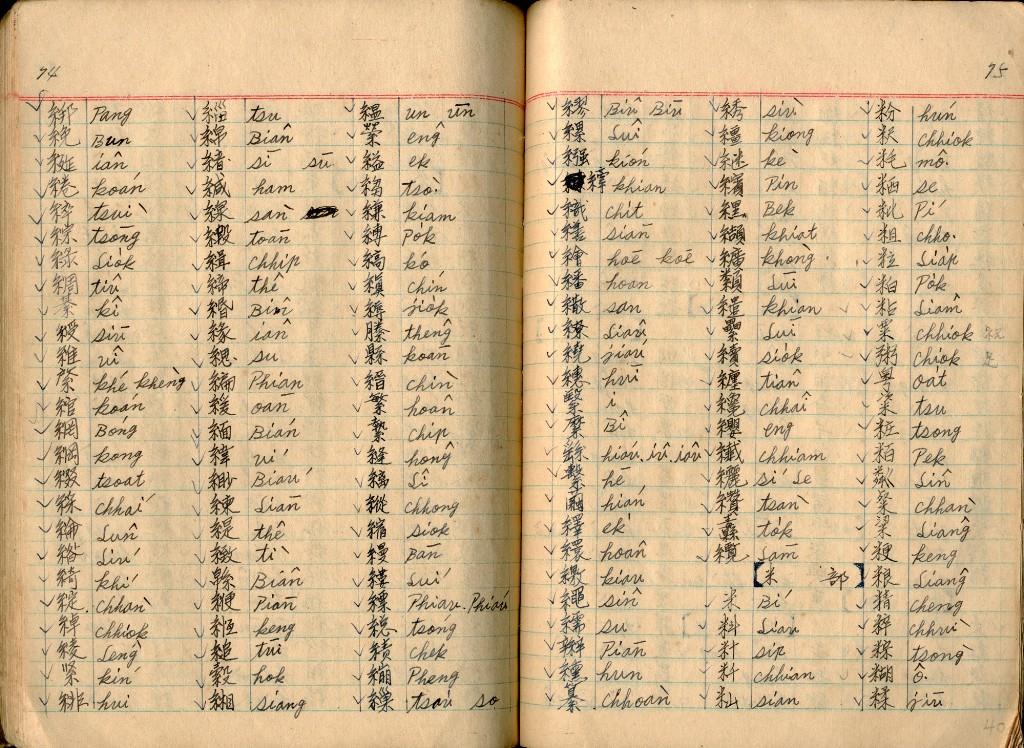 74
綁 Pang
絻 Bun
綖 iân
綣 koán
綷 tsuì
綜 tsòng
綠 Lio̍k
綢 tiû
綦 kî
綬 siū
維 uî
綮 khé khèng
綰 koán
網 Bóng
綱 kong
綴 tsoat
綵 chhái
綸 Lûn
綹 Liú
綺 khí
綻 chhàn
綽 chhiok
綾 Lêng
緊 kín
緋 hui
緇 tsu
綿 Biân
緒 sī sū
緘 ham
線 sàn
緞 toān
緝 chhip
締 thê
緡 Bîn
緣 iân
緦 su
編 Phian
緩 oān
緬 Bián
緯 uí
緲 Biáu
練 Liān
緹 thê
緻 tì
緜 Biân
緶 Piān
縆 keng
縋 tūi
縠 hok
緗 siang
縕 un ūn
縈 êng
縊 ek
縐 tsò͘
縑 kiam
縛 Po̍k
縞 kó
縝 chín
縟 jio̍k
縢 thêng
縣 koān
縉 chìn
繁 hoân
縶 chip
縫 hông
縭 Lî
縱 chhong
縮 siok
縵 Bān
Luí
縹 Phiau. Phiáu
總 tsong
績 chek
繃 Pheng
繰 tsau so
75
繆 Biû Biū
縲 Luî
繈 kión
繾 khian
織 chit
繕 siān
繪 hoē koē
繙 hoan
繖 san
繚 Liâu
繞 jiáu
繐 huī
繄 i
縻 Bî
繇 hiáu. iû. iâu
繫 hē
hián
繹 ek
繯 hoân
繳 kiau
繩 sîn
繻 su
辮 Piān
纁 hun
纂 chhoàn
綉 siù
繮 kiong
繼 kè
繽 Pin
纆 Bek
纈 khiat
纊 khòng.
纇 Lūi
繾 khian
纍 Lui
續 sio̍k
纏 tiân
纔 chhâi
纓 eng
纖 chhiam
纚 sí Le
纘 tsàn
纛 to̍k
纜 Lām
【米 部】
米 Bí
料 Liau
籵 sip
籷 chhian
籼 sian
粉 hún
chhiok
粍 mô.
粞 se
粃 Pí
粗 chho.
粒 Lia̍p
粕 Po̍k
粘 Liâm
粟 chhiok
粥 chiok
粵 oa̍t
粢 tsu
粧 tsong
粨 Pek
粼 Lîn
粲 chhàn
粱 Liâng
粳 keng
粮 Liâng
精 cheng
粹 chhuì
粽 tsòng
糊 ô.
糅 jiū
40